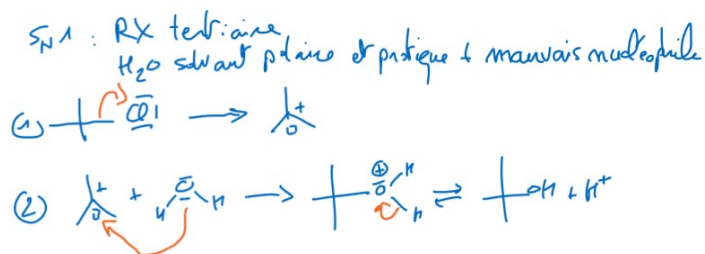 SN1 : RX tertiaire
H2O solvant polaire et protique + mauvais nucléophile
① Cl → +
② + + H O H → ⊕ O H H ⇌ OH + H+